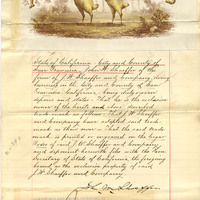 State of California City and County of
San Francisco. John W. Shaeffer of the
firm of J. W. Shaeffer and Company doing
business in the City and County of San
Francisco California being duly sworn
deposes and states. That he is the exclusive
owner of the herein and above described
trade mark as follows That J. W. Shaeffer
and Company have adopted said trade
mark as their own That the said trade
mark is printed or engraved on the
of said J. W. Shaeffer and Company
and deposited herewith files with the
Secretary of State of California, the foregoing
brand as the exclusive property of said
J. W. Shaeffer and Company
J. W. Shaeffer